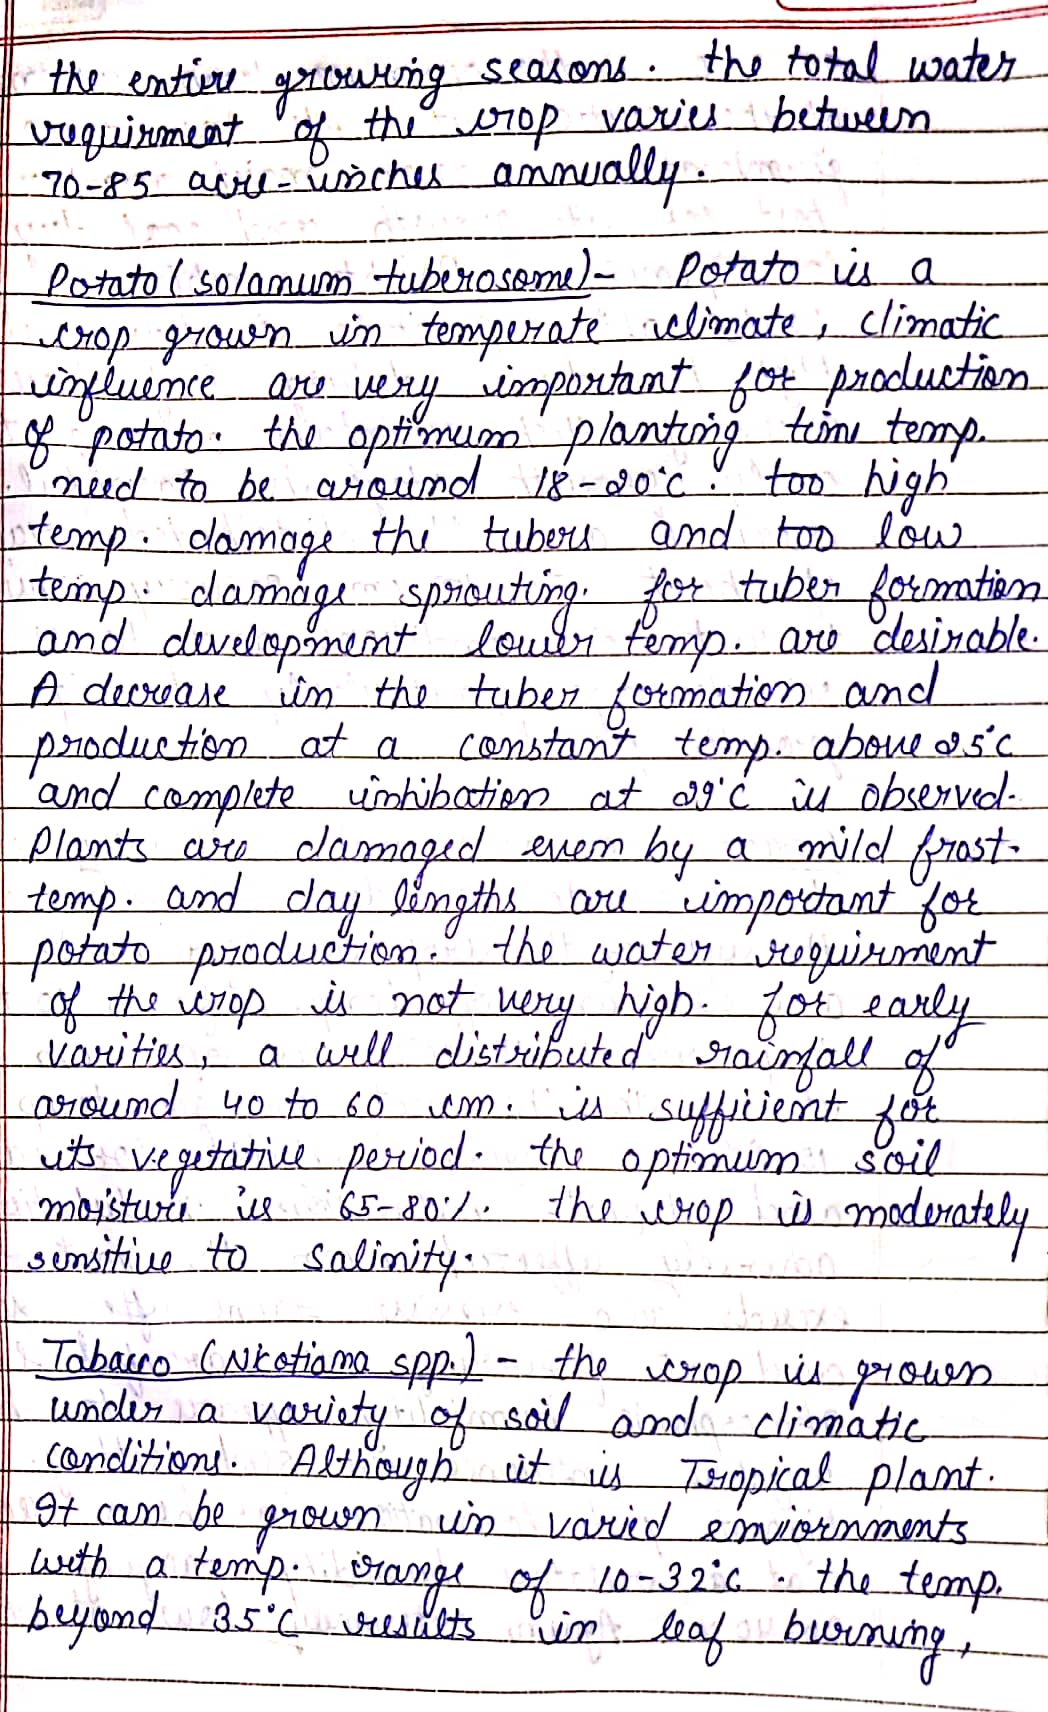 the entire growing seasons. the total water
requirment of the crop varies between
70-85 acre-inches annually.
Potato (solanum tuberosome)- Potato is a
crop grown in temperate climate, climatic
influence are very important for production
of potato. the optimum planting time temp.
need to be around 18-20°c. too high
temp. damage the tubers and too low
temp. damage sprouting. for tuber formation
and development lower temp. are desirable.
A decrease in the tuber formation and
production at a constant temp. above 25°c
and complete inhibation at 29°c is observed.
Plants are damaged even by a mild frost.
temp. and day lengths are important for
potato production. the water requirment
of the crop is not very high. for early
varities, a well distributed rainfall of
around 40 to 60 cm. is sufficient for
its vegetative period. the optimum soil
moisture is 65-80%. the crop is moderately
sensitive to salinity.
Tabacco (Nicotiana spp.) - the crop is grown
under a variety of soil and climatic
conditions. Although it is Tropical plant.
It can be grown in varied enviornments
with a temp. range of 10-32°c. the temp.
beyond 35°C results in leaf burning,